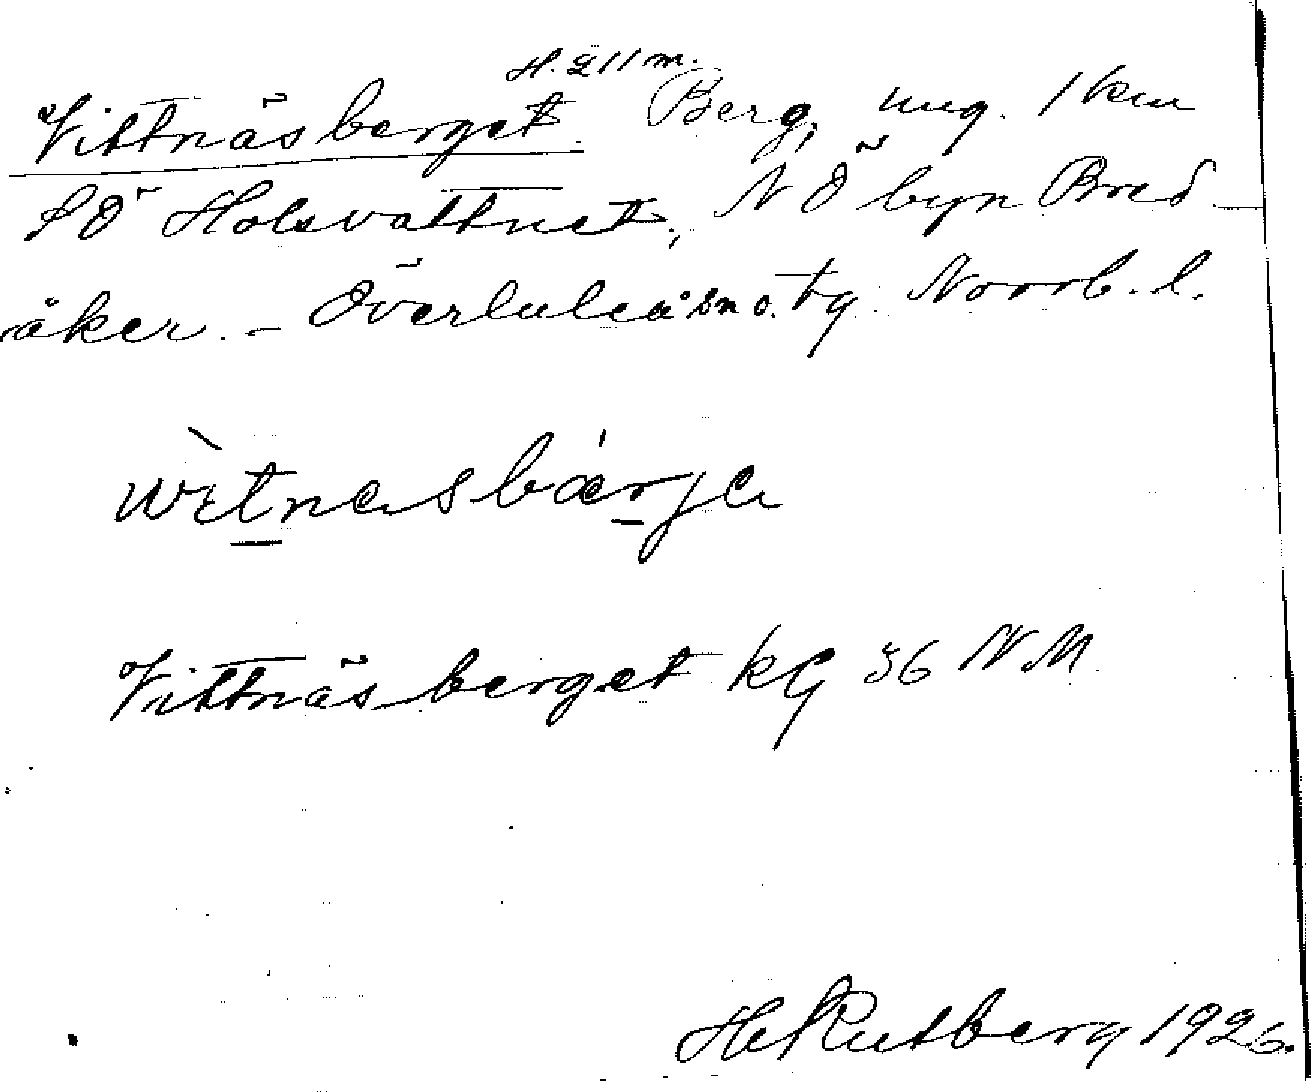 H. 211 m.
Vittnäsberget. Berg, ung. 1 km
SÖ Holsvattnet, NÖ byn Bred-
åker. - Överluleå sn o. tg. Norrb. l.
wìtnesbárja
Vittnäsberget kG 36 NM
Hj Rutberg 1926.